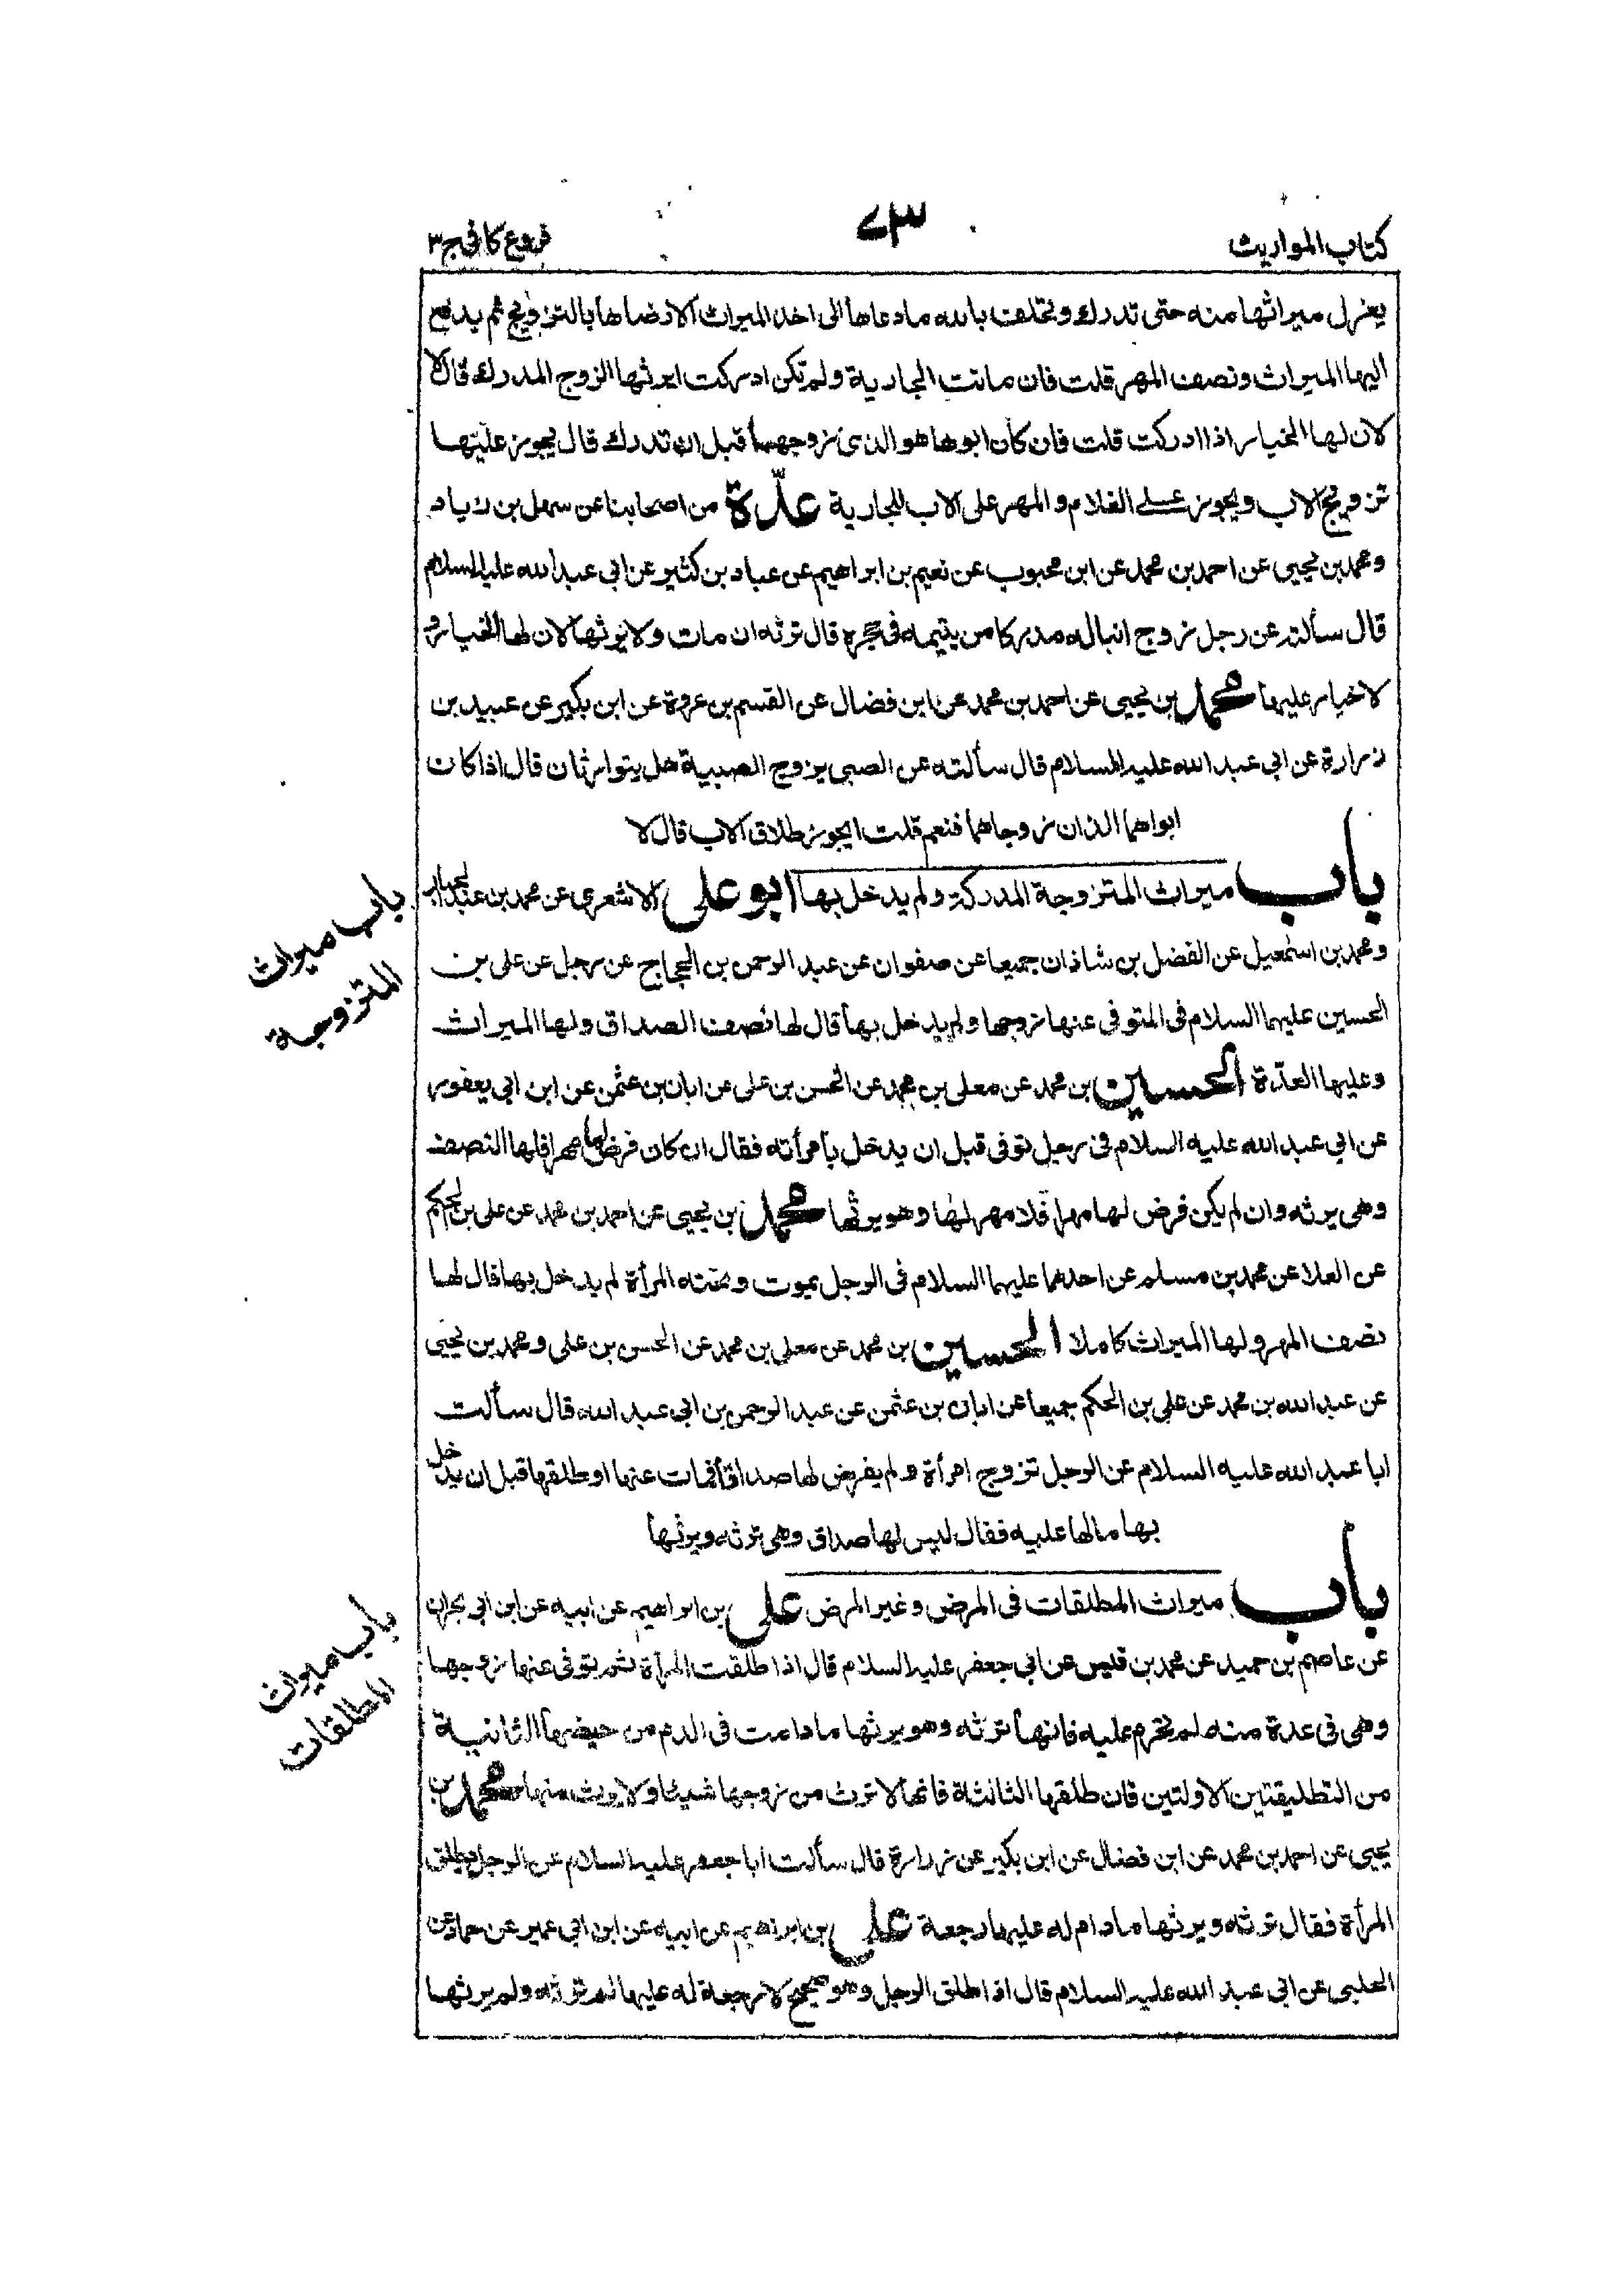 كتاب المواريث
٧٣
فروع كافى ج٣
يعزل ميراثها منه حتى تدرك وتحلف بالله ما دعاها الى اخذ الميراث الا رضاها بالتزويج ثم يدفع
اليها الميراث ونصف المهر قلت فان ماتت الجارية ولم تكن ادركت ايرثها الزوج المدرك قال لا
لان لها الخيار اذا ادركت قلت فان كان ابوها هو الذى زوجها قبل ان تدرك قال يجوز عليها
تزويج الاب ويجوز على الغلام و المهر على الاب للجارية عدّة من اصحابنا عن سهل بن زياد
ومحمد بن يحيى عن احمد بن محمد عن ابن محبوب عن نعيم بن ابراهيم عن عباد بن كثير عن ابى عبد الله عليه السلام
قال سألته عن رجل زوج ابنا له مدركا من يتيمة فى حجره قال ترثه ان مات ولا يرثها لان لها الخيار و
لا خيار عليها محمد بن يحيى عن احمد بن محمد عن ابن فضال عن القسم بن عروة عن ابن بكير عن عبيد بن
زرارة عن ابى عبد الله عليه السلام قال سألته عن الصبى يزوج الصبية هل يتوارثان قال اذا كان
ابواهما الذان زوجاهما فنعم قلت ايجوز طلاق الاب قال لا
باب ميراث المتزوجة المدركة ولم يدخل بها ابو على الاشعرى عن محمد بن عبد الجبار
ومحمد بن اسمعيل عن الفضل بن شاذان جميعا عن صفوان عن عبد الرحمن بن الحجاج عن رجل عن على بن
الحسين عليهما السلام فى المتوفى عنها زوجها ولم يدخل بها قال لها نصف الصداق ولها الميراث
وعليها العدّة الحسين بن محمد عن معلى بن محمد عن الحسن بن على عن ابان بن عثمن عن ابن ابى يعفور
عن ابى عبد الله عليه السلام فى رجل توفى قبل ان يدخل بامرأته فقال ان كان فرض لها مهرا فلها النصف
وهى يرثه وان لم يكن فرض لها مهرا فلا مهر لها وهو يرثها محمد بن يحيى عن احمد بن محمد عن على بن الحكم
عن العلا عن محمد بن مسلم عن احدهما عليهما السلام فى الرجل يموت وتحته المرأة لم يدخل بها قال لها
نصف المهر ولها الميراث كاملا الحسين بن محمد عن معلى بن محمد عن الحسن بن على ومحمد بن يحيى
عن عبد الله بن محمد عن على بن الحكم جميعا عن ابان بن عثمن عن عبد الرحمن بن ابى عبد الله قال سألت
ابا عبد الله عليه السلام عن الرجل تزوج امرأة ولم يفرض لها صداقا فمات عنها او طلقها قبل ان يدخل
بها مالها عليه فقال ليس لها صداق وهى ترثه ويرثها
باب ميراث المطلقات فى المرض وغير المرض على بن ابراهيم عن ابيه عن ابن ابى نجران
عن عاصم بن حميد عن محمد بن قيس عن ابى جعفر عليه السلام قال اذا طلقت المرأة ثم توفى عنها زوجها
وهى فى عدة منه لم تحرم عليه فانها ترثه وهو يرثها ما دامت فى الدم من حيضها الثانية
من التطليقتين الاولتين فان طلقها الثالثة فانها لا ترث من زوجها شيئا ولا يرث منها محمد بن
يحيى عن احمد بن محمد عن ابن فضال عن ابن بكير عن زرارة قال سألت ابا جعفر عليه السلام عن الرجل يطلق
المرأة فقال ترثه ويرثها ما دام له عليها رجعة على بن ابرهيم عن ابيه عن ابن ابى عمير عن حماد عن
الحلبى عن ابى عبد الله عليه السلام قال اذا طلق الرجل وهو صحيح لا رجعة له عليها لم ترثه ولم يرثها
باب ميراث
المتزوجة
باب ميراث
المطلقات